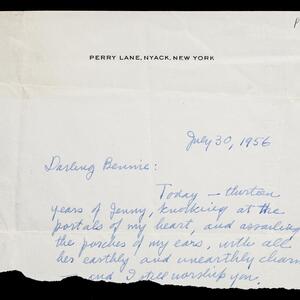 P
PERRY LANE, NYACK, NEW YORK
July 30, 1956
Darling Bennie:
Today — thirteen
years of Jenny, knocking at the
portals of my heart, and assailing
the porches of my ears, with all
her earthly and unearthly charm
and I still worship you.